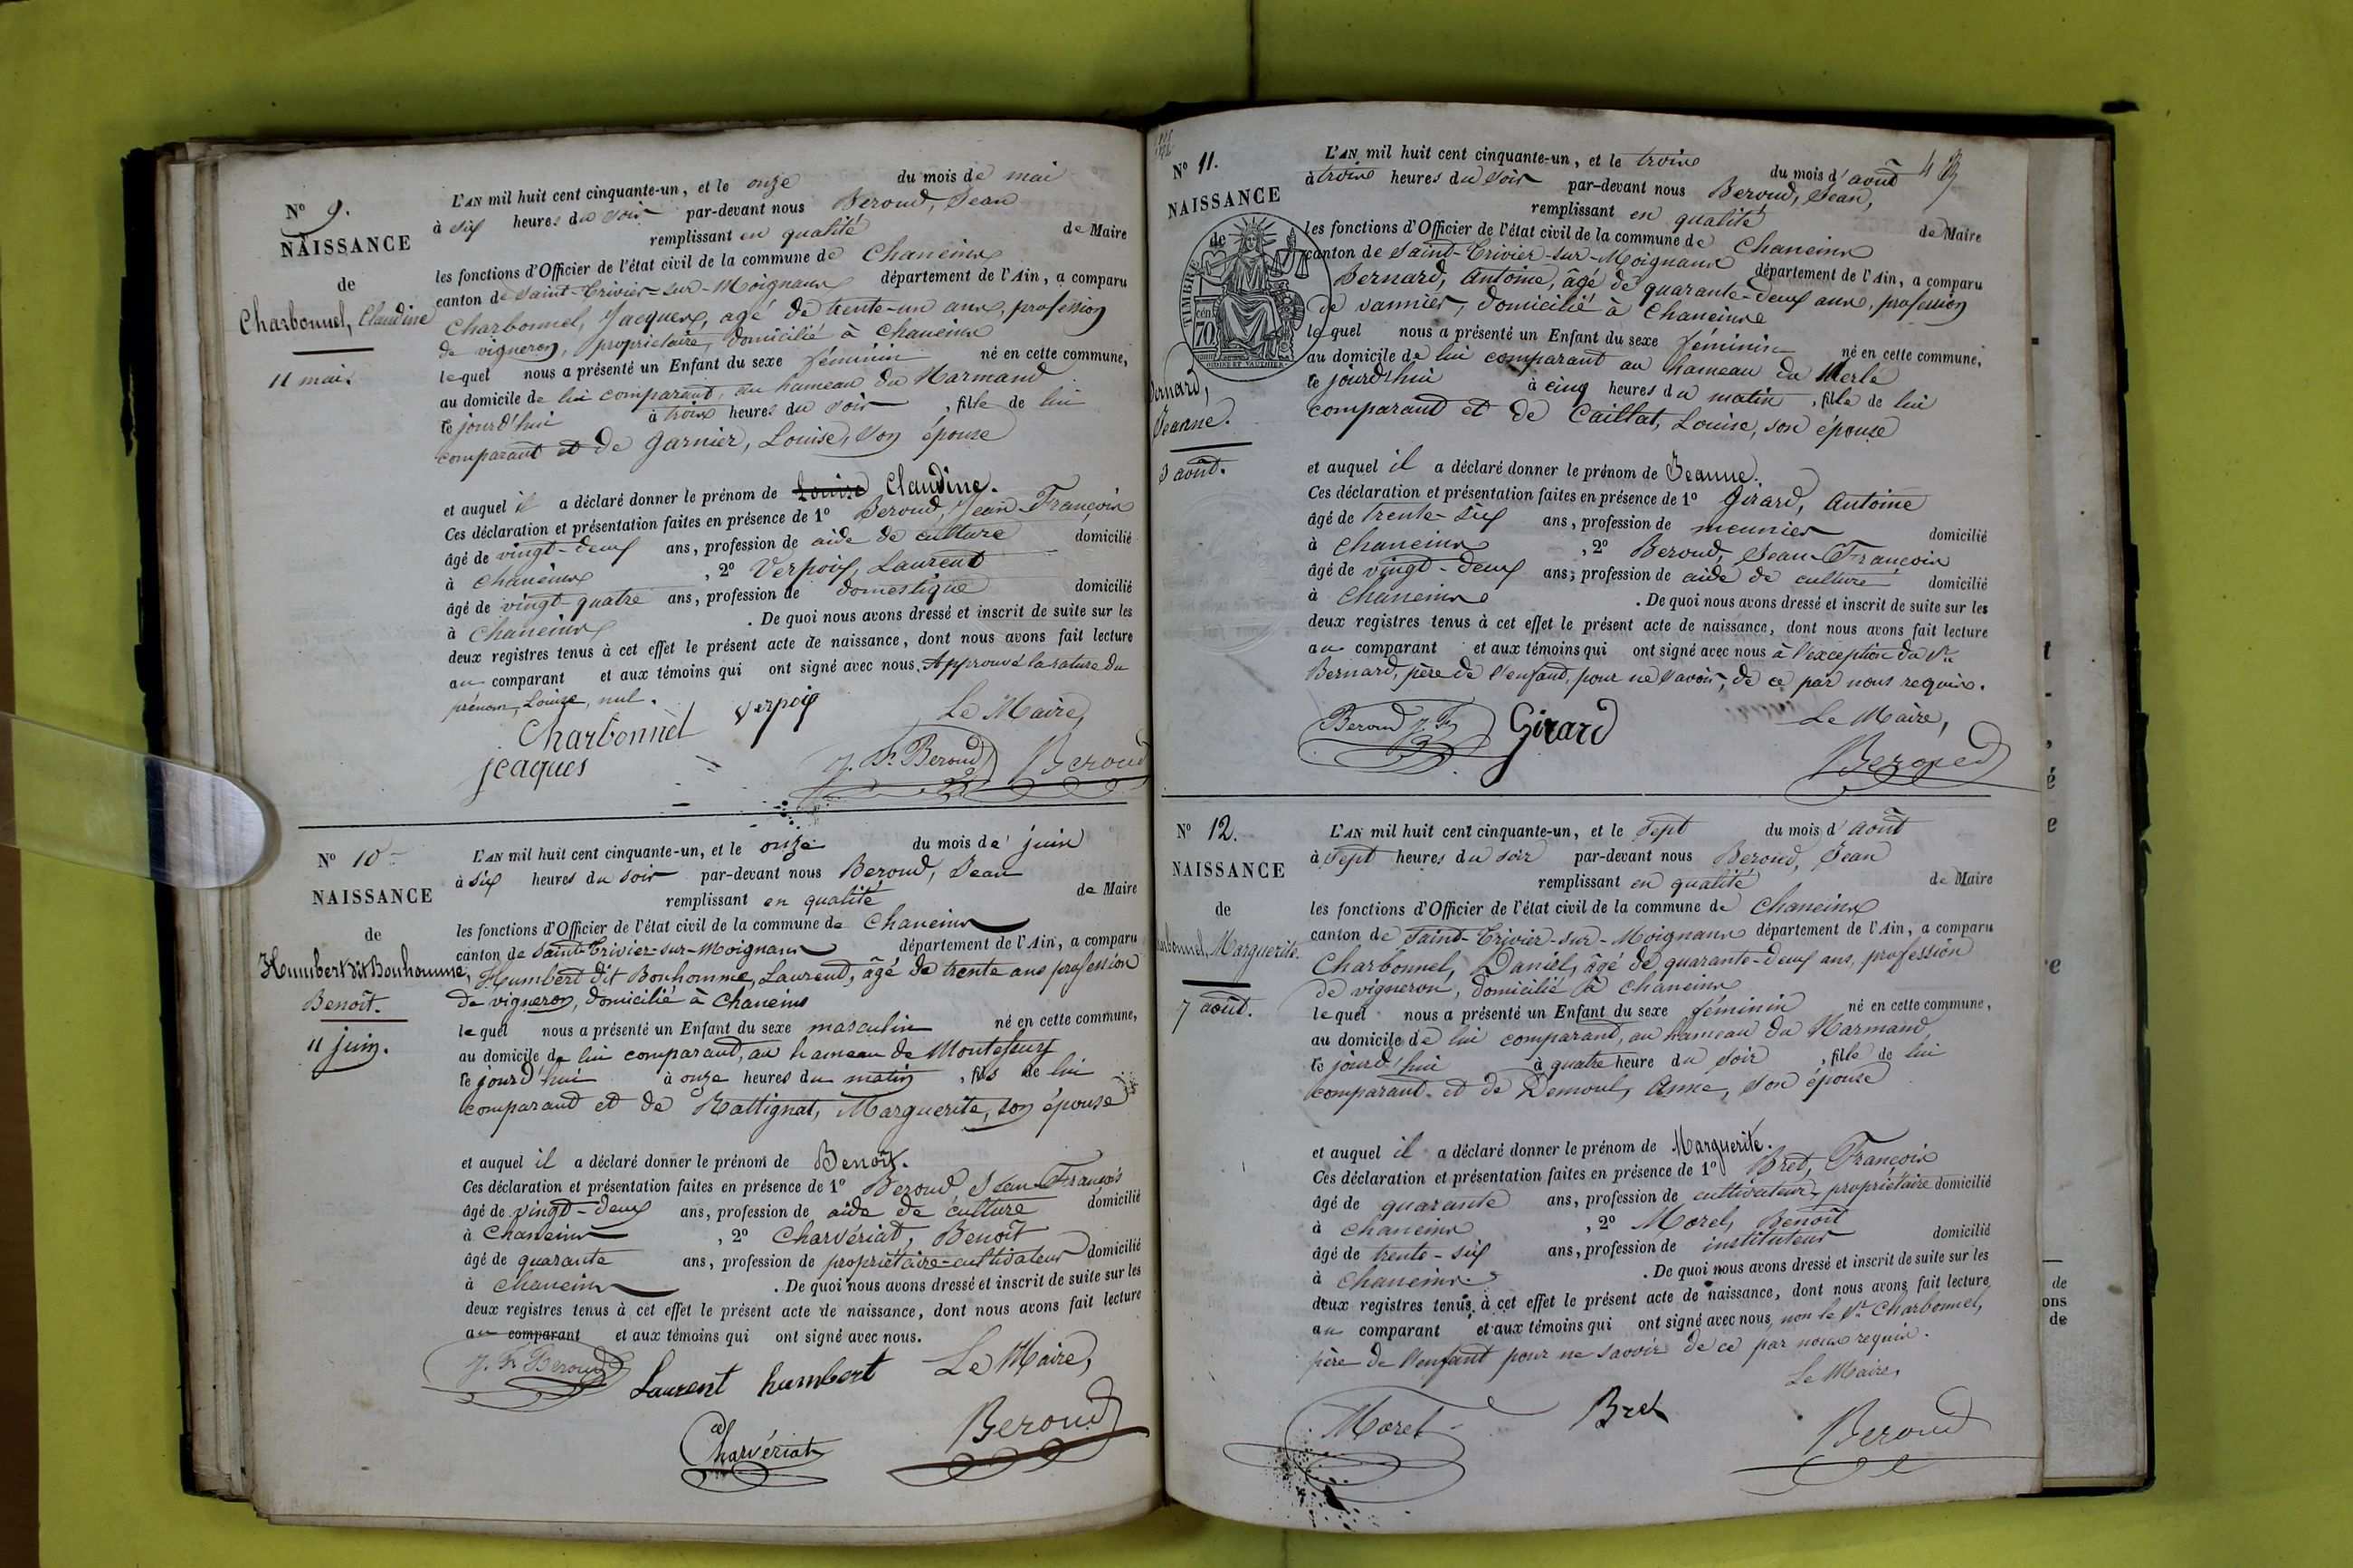 N° 9.
NAISSANCE
de
Charbonnel, Claudine
11 mai.
L'AN mil huit cent cinquante-un, et le onze du mois de mai
à six heures du soir par-devant nous Beroud, Jean
remplissant en qualité de Maire
les fonctions d'Officier de l'état civil de la commune de Chaneins
canton de Saint-Trivier-sur-Moignans département de l'Ain, a comparu
Charbonnel, Jacques, agé de trente-un ans, profession
de vigneron, propriétaire, domicilié à Chaneins
lequel nous a présenté un Enfant du sexe féminin né en cette commune,
au domicile de lui comparant, au hameau du Marmand
le jourd'hui à trois heures du soir, fille de lui
comparant et de Garnier, Louise, son épouse
et auquel il a déclaré donner le prénom de Louise Claudine.
Ces déclaration et présentation faites en présence de 1° Beroud, Jean-François
âgé de vingt-deux ans, profession de aide de culture domicilié
à Chaneins, 2° Verpoix, Laurent
âgé de vingt-quatre ans, profession de domestique domicilié
à Chaneins. De quoi nous avons dressé et inscrit de suite sur les
deux registres tenus à cet effet le présent acte de naissance, dont nous avons fait lecture
au comparant et aux témoins qui ont signé avec nous. Approuvé la rature du
prénom, Louise, nul.
Charbonnel verpoix Le Maire,
jeaques J. F. Beroud Beroud
N° 10
NAISSANCE
de
Humbert dit Bonhomme,
Benoît.
11 juin.
L'AN mil huit cent cinquante-un, et le onze du mois de juin
à six heures du soir par-devant nous Beroud, Jean
remplissant en qualité de Maire
les fonctions d'Officier de l'état civil de la commune de Chaneins
canton de Saint-Trivier-sur-Moignans département de l'Ain, a comparu
Humbert dit Bonhomme, Laurent, âgé de trente ans profession
de vigneron, domicilié à Chaneins
lequel nous a présenté un Enfant du sexe masculin né en cette commune,
au domicile de lui comparant, au hameau de
le jourd'hui à onze heures du matin, fils de lui
comparant et de Rattignat, Marguerite, son épouse
et auquel il a déclaré donner le prénom de Benoît.
Ces déclaration et présentation faites en présence de 1° Beroud Jean-François
âgé de vingt-deux ans, profession de aide de culture domicilié
à Chaneins, 2° Charvériat, Benoît
âgé de quarante ans, profession de propriétaire-cultivateur domicilié
à Chaneins. De quoi nous avons dressé et inscrit de suite sur les
deux registres tenus à cet effet le présent acte de naissance, dont nous avons fait lecture
au comparant et aux témoins qui ont signé avec nous.
J. F. Beroud Laurent humbert Le Maire,
Charvériat Beroud
N° 11.
NAISSANCE
de
TIMBRE
70
Jeanne.
3 août.
L'AN mil huit cent cinquante-un, et le trois du mois d'août
à trois heures du soir par-devant nous Beroud, Jean,
remplissant en qualité de Maire
les fonctions d'Officier de l'état civil de la commune de Chaneins
canton de Saint-Trivier-sur-Moignans département de l'Ain, a comparu
Bernard, Antoine, âgé de quarante-deux ans, profession
de vannier, domicilié à Chaneins
lequel nous a présenté un Enfant du sexe féminin né en cette commune,
au domicile de lui comparant au hameau du Merle
le jourd'hui à cinq heures du matin, fille de lui
comparant et de Caillat, Louise, son épouse
et auquel il a déclaré donner le prénom de Jeanne.
Ces déclaration et présentation faites en présence de 1° Girard, Antoine
âgé de trente-six ans, profession de meunier domicilié
à Chaneins, 2° Beroud, Jean-François
âgé de vingt-deux ans, profession de aide de culture domicilié
à Chaneins. De quoi nous avons dressé et inscrit de suite sur les
deux registres tenus à cet effet le présent acte de naissance, dont nous avons fait lecture
au comparant et aux témoins qui ont signé avec nous à l'exception du Sr
Bernard, père de l'enfant, pour ne savoir, de ce par nous requis.
Beroud J. F. Girard Le Maire,
Beroud
N° 12.
NAISSANCE
de
Marguerite.
7 août.
L'AN mil huit cent cinquante-un, et le sept du mois d'août
à sept heures du soir par-devant nous Beroud, Jean
remplissant en qualité de Maire
les fonctions d'Officier de l'état civil de la commune de Chaneins
canton de Saint-Trivier-sur-Moignans département de l'Ain, a comparu
Charbonnel, Daniel, âgé de quarante-deux ans, profession
de vigneron, domicilié à Chaneins
lequel nous a présenté un Enfant du sexe féminin né en cette commune,
au domicile de lui comparant, au hameau du Marmand
le jourd'hui à quatre heure du soir, fille de lui
comparant et de Demoul, Anne, son épouse
et auquel il a déclaré donner le prénom de Marguerite.
Ces déclaration et présentation faites en présence de 1° Bret, François
âgé de quarante ans, profession de cultivateur, propriétaire domicilié
à Chaneins, 2° Morel, Benoît
âgé de trente-six ans, profession de instituteur domicilié
à Chaneins. De quoi nous avons dressé et inscrit de suite sur les
deux registres tenus à cet effet le présent acte de naissance, dont nous avons fait lecture
au comparant et aux témoins qui ont signé avec nous, non le Sr Charbonnel,
père de l'enfant pour ne savoir de ce par nous requis.
Le Maire,
Morel Bret
Beroud
de
ons
de